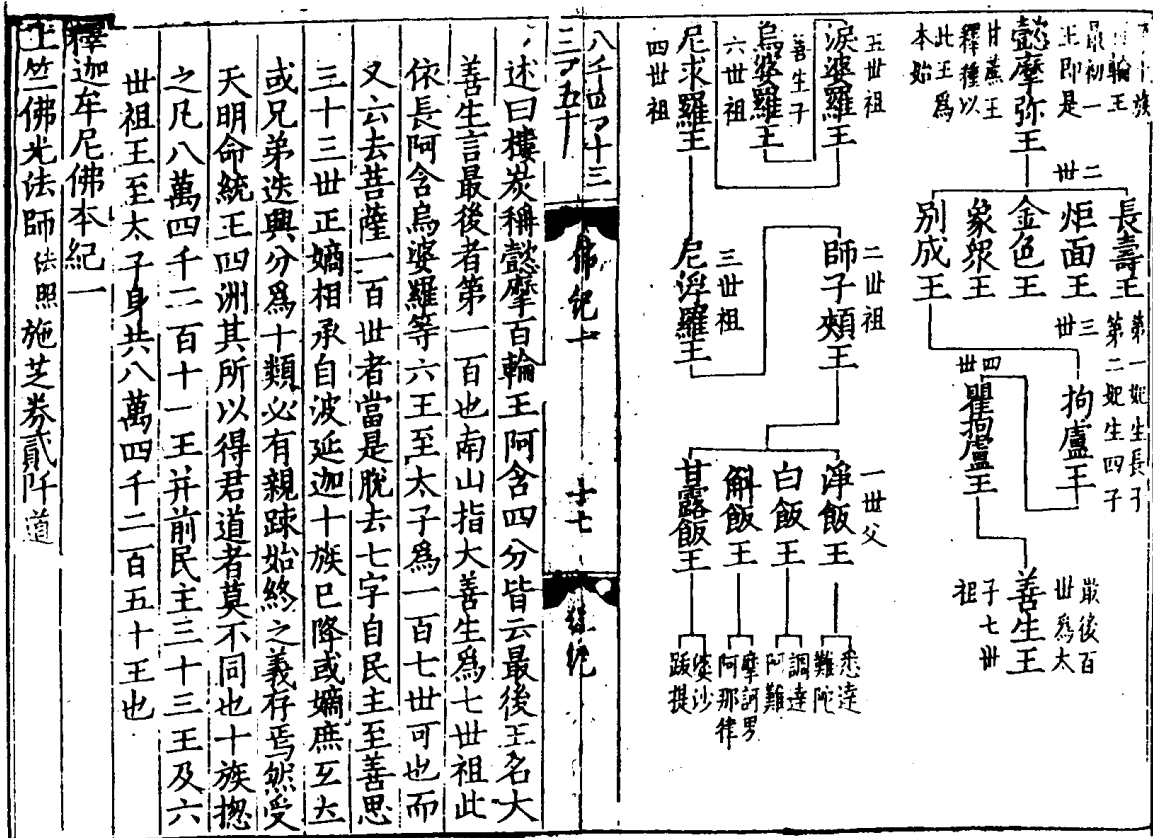 百輪王
最初一
王即是
甘蔗王
釋種以
此王爲
本始
懿摩弥王
二世
長壽王
炬面王
金色王
象衆王
別成王
第一妃生長子
第二妃生四子
三世
拘盧王
四世
瞿拘盧王
最後百
世爲太
子七世
祖
善生王
五世祖
淚婆羅王
善生子
烏婆羅王
六世祖
尼求羅王
四世祖
二世祖
師子頰王
三世祖
尼浮羅王
一世父
淨飯王
白飯王
斛飯王
甘露飯王
悉達
難陀
調達
阿難
摩訶男
阿那律
婆沙
跋提
八千四百十三
三百五十
佛紀一
十七
述曰樓炭稱懿摩百輪王阿含四分皆云最後王名大
善生言最後者第一百也南山指大善生爲七世祖此
依長阿含烏婆羅等六王至太子爲一百七世可也而
又云去菩薩一百世者當是脫去七字自民主至善思
三十三世正嫡相承自波延迦十族已降或嫡庶互立
或兄弟迭興分爲十類必有親踈始終之義存焉然受
天明命統王四洲其所以得君道者莫不同也十族揔
之凡八萬四千二百十一王并前民主三十三王及六
世祖王至太子身共八萬四千二百五十王也
釋迦牟尼佛本紀一
上竺佛光法師法照施芝券貳阡道